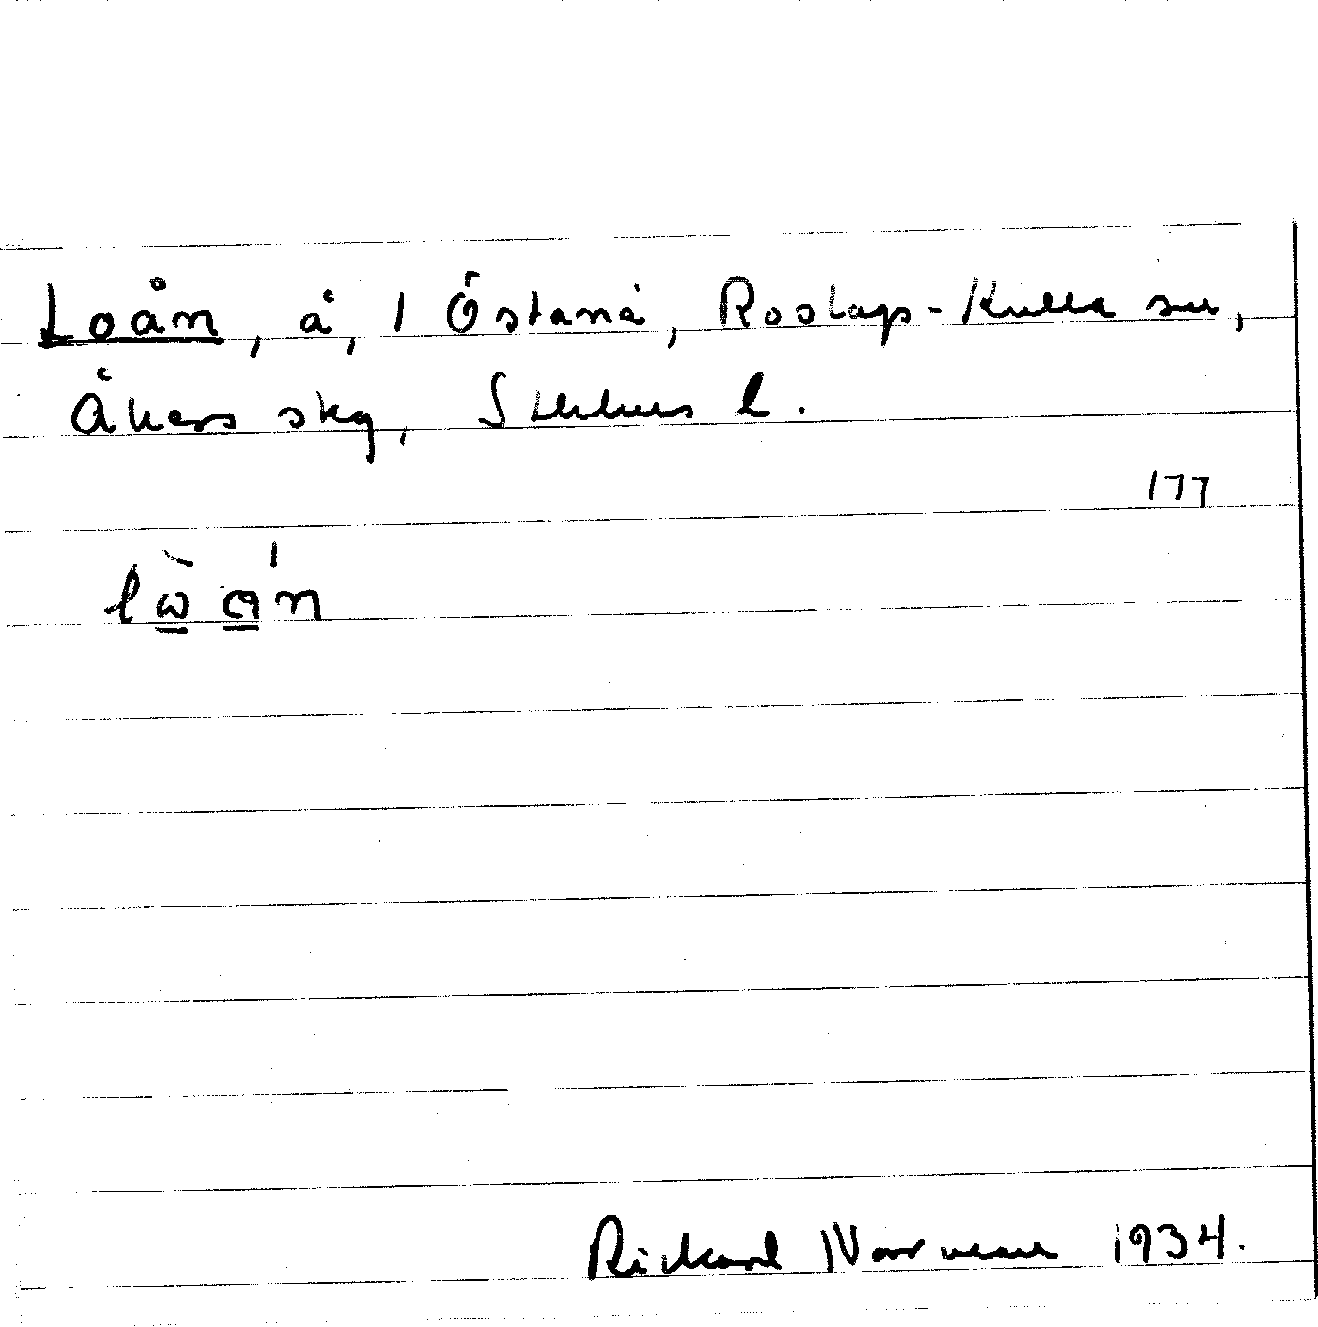 Loån, å, i Östanå, Roslags-Kulla sn,
Åkers skg, Sthlms l.
177
lὼ án
Rickard Norrman 1934.